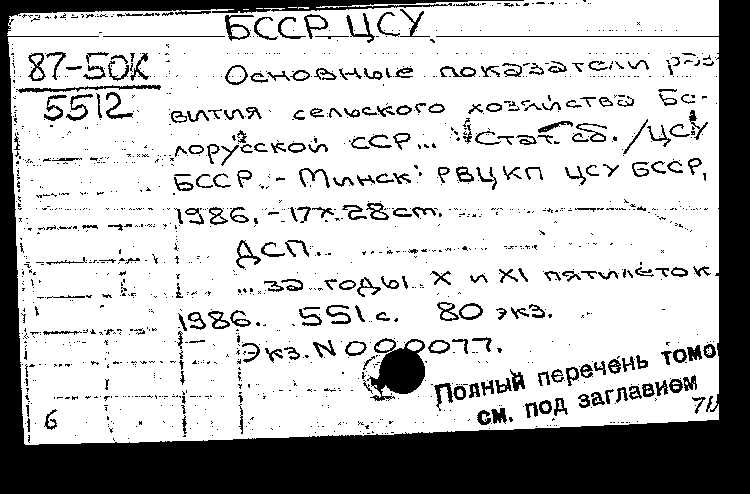 БССР. ЦСУ.
87-50К
5512
Основные показатели раз-
вития сельского хозяйства Бе-
лорусской ССР... : Стат. сб. / ЦСУ
БССР. - Минск : РВЦ КП ЦСУ БССР,
1986. - 17x28 cm.
ДСП.
... за годы X и XI пятилеток.
1986. 551 с. 80 экз.
Экз. N 000077.
Полный перечень томо
см. под заглавием
6